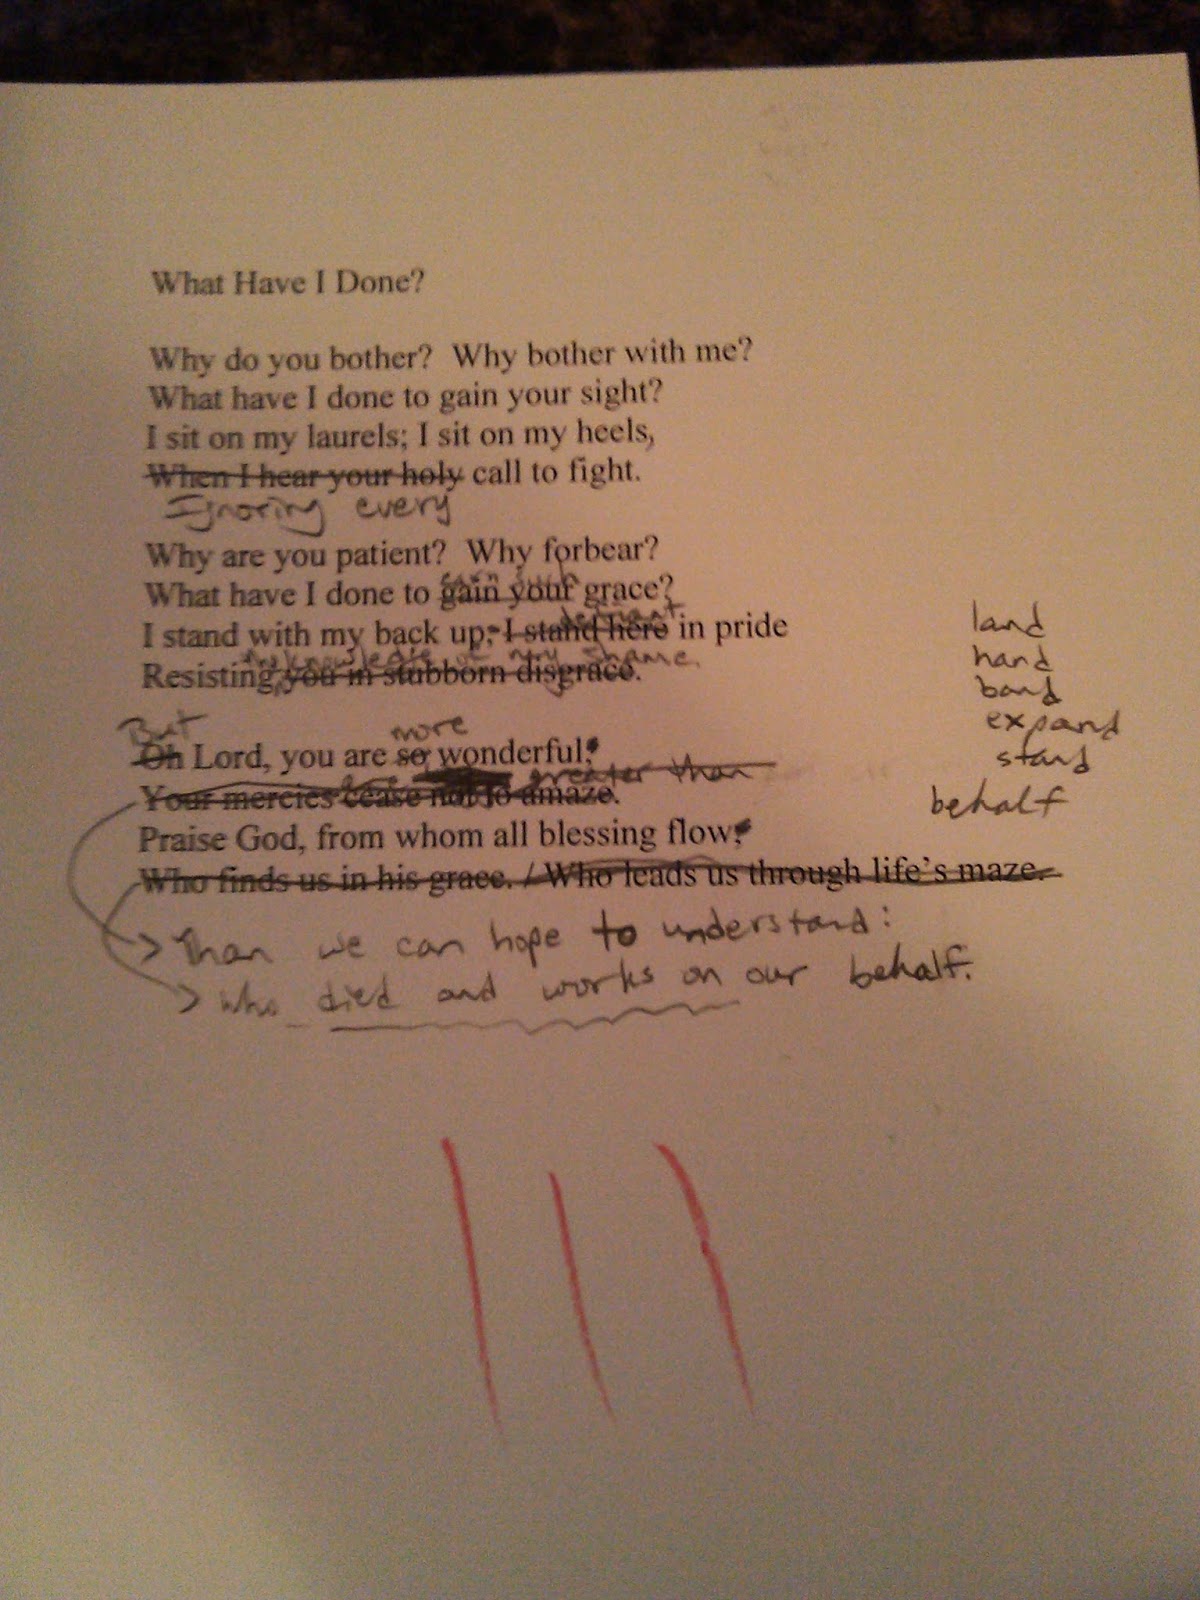 What Have I Done?
Why do you bother?  Why bother with me?
What have I done to gain your sight?
I sit on my laurels; I sit on my heels,
When I hear your holy call to fight.
Ignoring every
Why are you patient?  Why forbear?
What have I done to gain your grace?
I stand with my back up; I stand here in pride
my knowledge of my shame.
Resisting you in stubborn disgrace.
But more
Oh Lord, you are so wonderful;
greater than
Your mercies cease not to amaze.
Praise God, from whom all blessing flow,
Who finds us in his grace. / Who leads us through life's maze.
Than we can hope to understand:
who died and works on our behalf.
land
hand
band
expand
stand
behalf